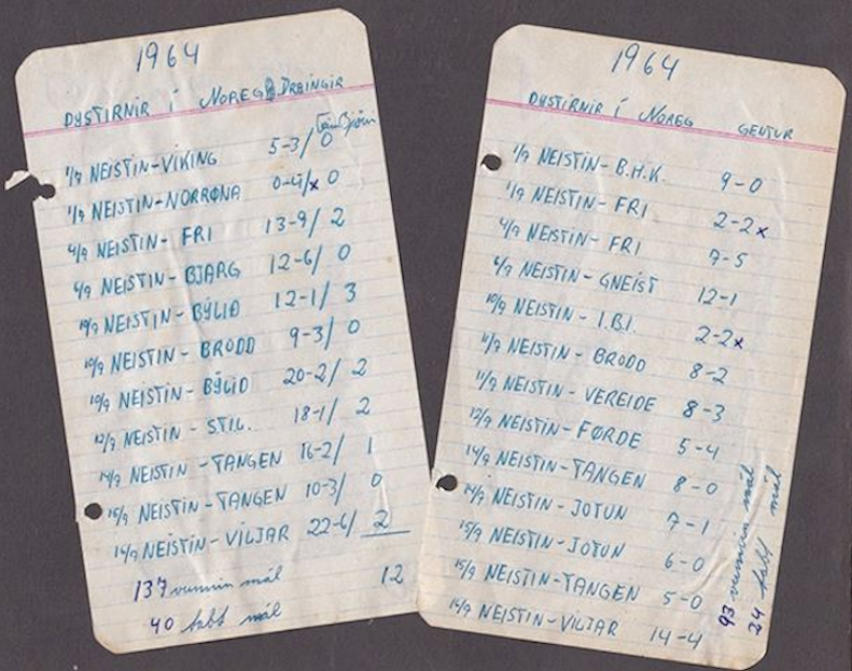 1964
DYSTIRNIR Í NOREG DREINGIR
Björn
1/9 NEISTIN-VIKING 5-3/ 0
1/9 NEISTIN-NORRØNA 0-4/x 0
4/9 NEISTIN- FRI 13-9/ 2
6/9 NEISTIN- BJARG 12-6/ 0
10/9 NEISTIN- BÝLIÐ 12-1/ 3
10/9 NEISTIN- BRODD 9-3/ 0
10/9 NEISTIN- BÝLIÐ 20-2/ 2
12/9 NEISTIN - STIL. 18-1/ 2
14/9 NEISTIN -TANGEN 16-2/ 1
15/9 NEISTIN-TANGEN 10-3/ 0
16/9 NEISTIN-VILJAR 22-6/ 2
137 vunnin mál 12
40 tabt mál
1964
DYSTIRNIR Í NOREG GENTUR
1/9 NEISTIN-B.H.K. 9-0
1/9 NEISTIN- FRI 2-2x
4/9 NEISTIN- FRI 7-5
6/9 NEISTIN- GNEIST 12-1
10/9 NEISTIN - I.B.I. 2-2x
11/9 NEISTIN- BRODD 8-2
11/9 NEISTIN- VEREIDE 8-3
12/9 NEISTIN-FØRDE 5-4
14/9 NEISTIN-TANGEN 8-0
14/9 NEISTIN- JOTUN 7-1
15/9 NEISTIN-JOTUN 6-0
15/9 NEISTIN-TANGEN 5-0
16/9 NEISTIN-VILJAR 14-4
93 vunnin mál
24 tabt mál